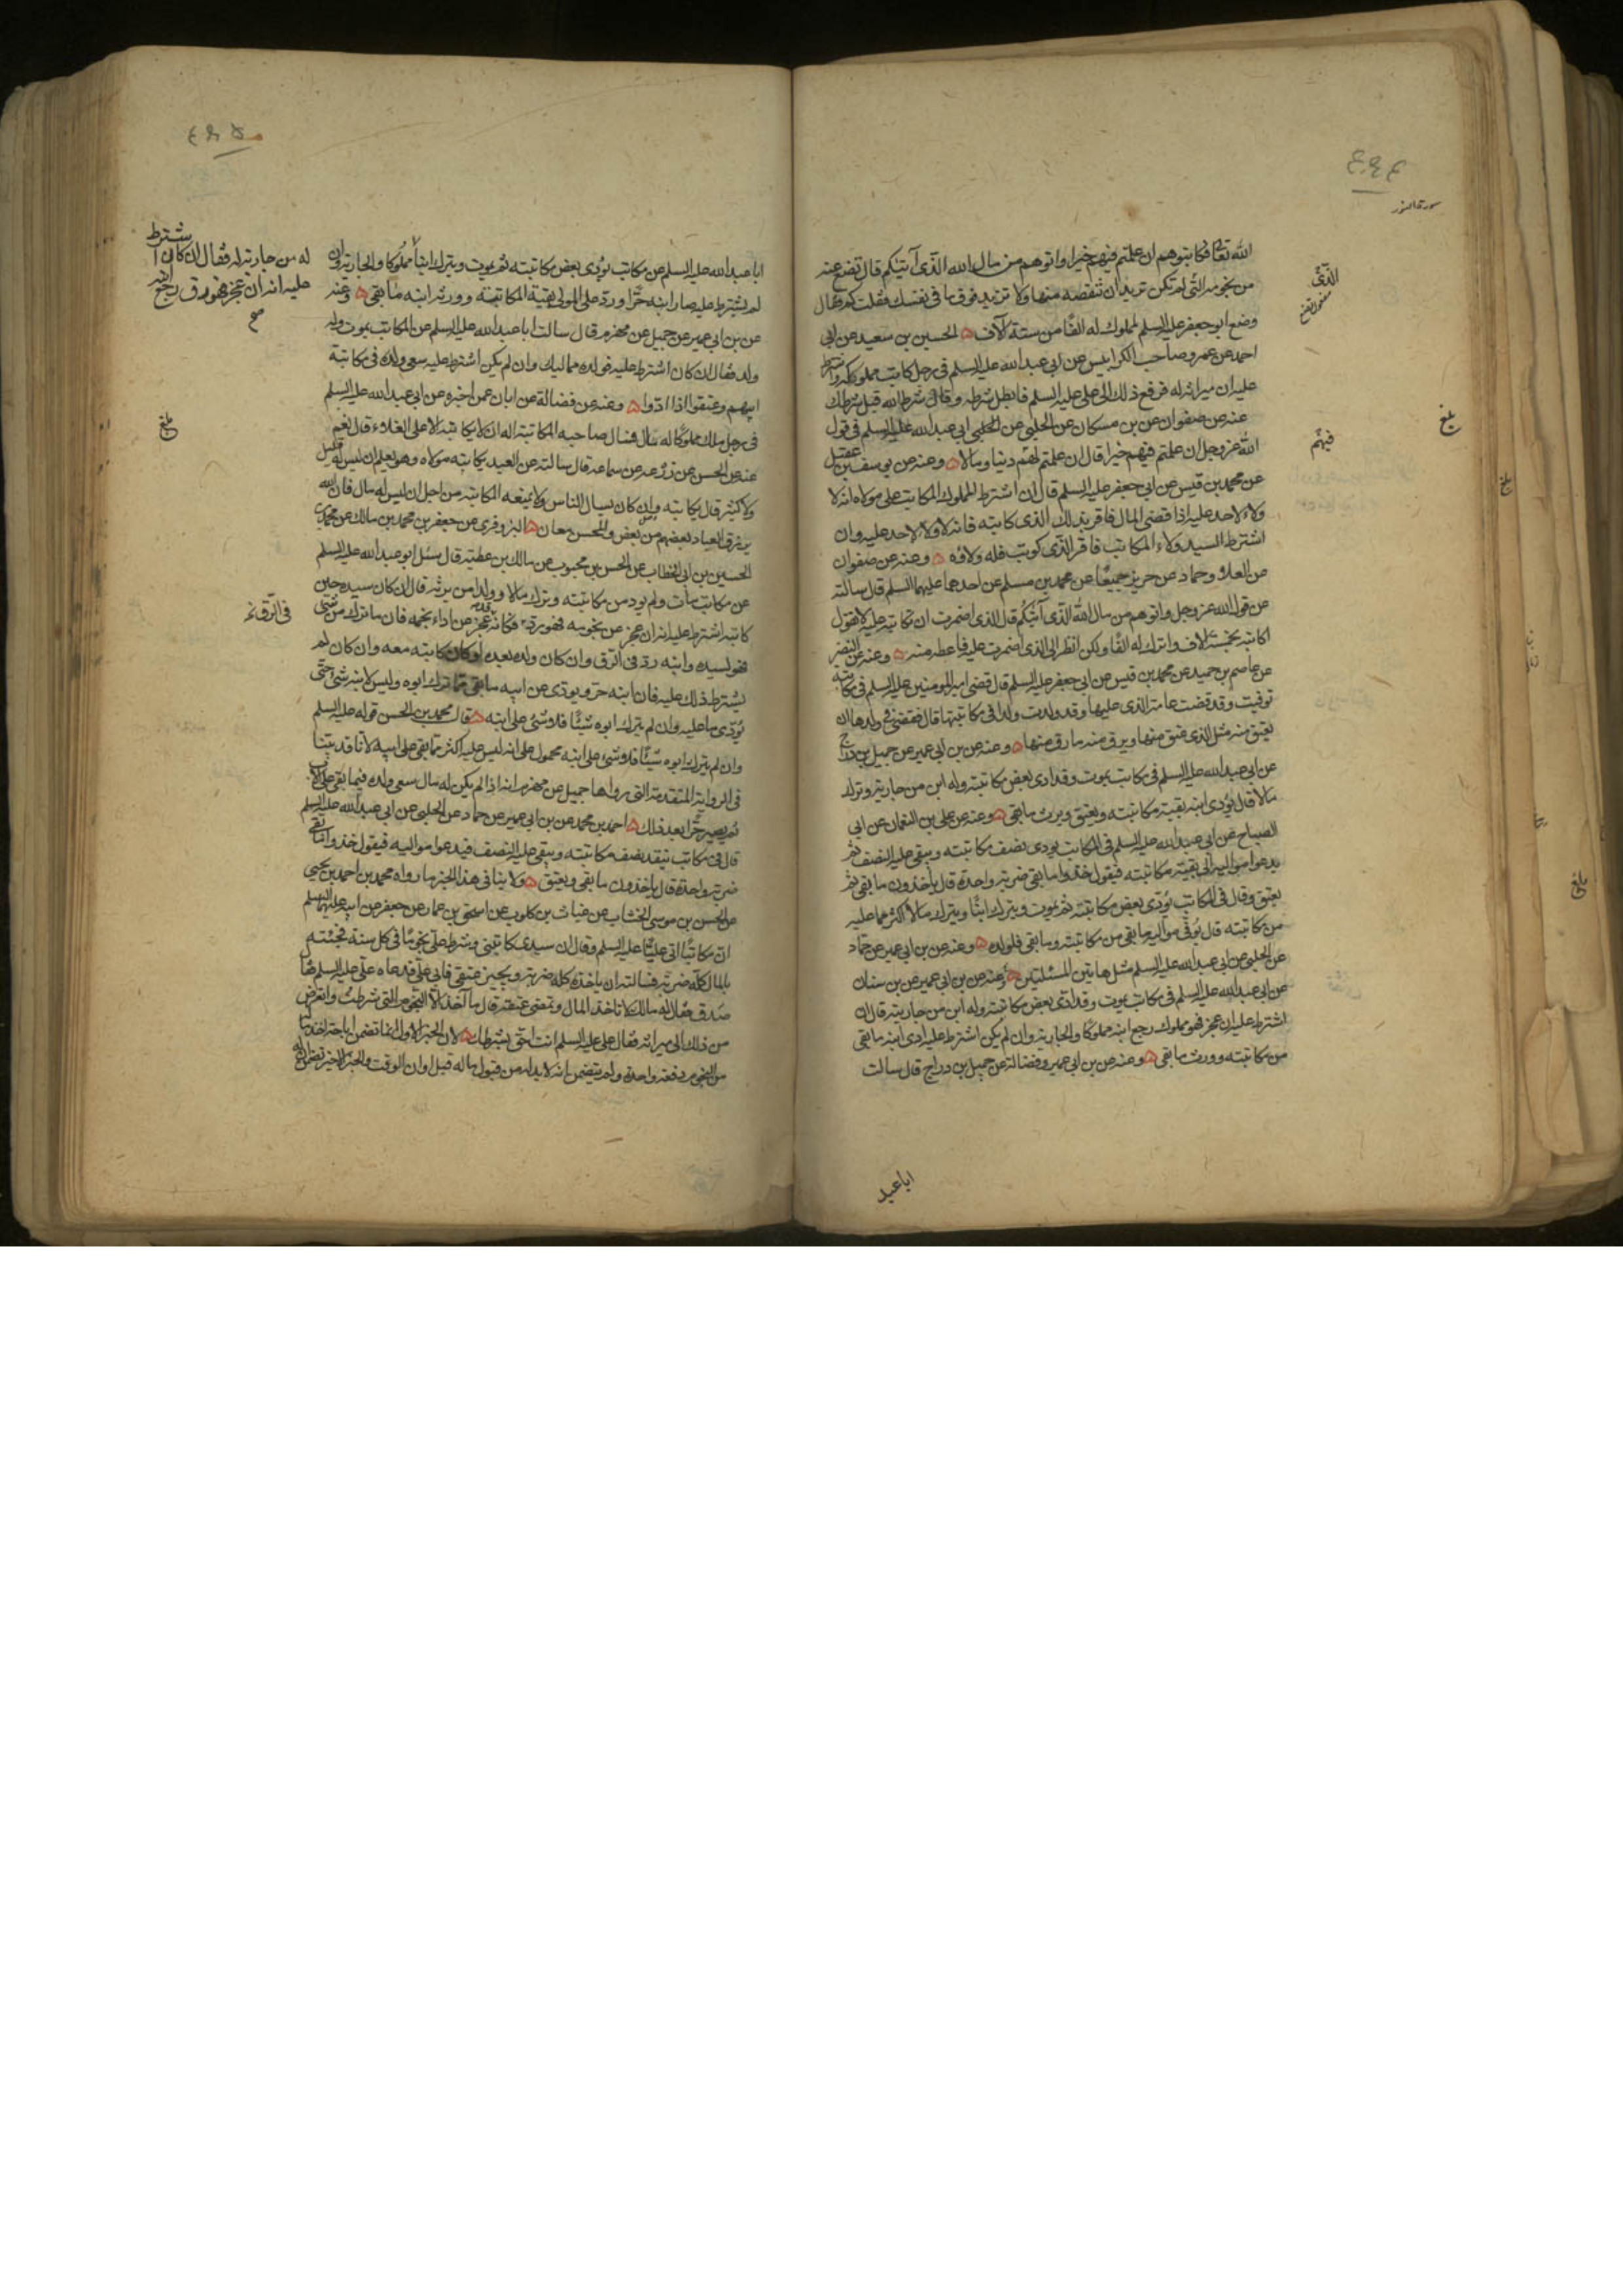 سورة النور
الله تعالى فكاتبوهم ان علمتم فيهم خيرا واتوهم من مال الله الذي آتيكم قال تضع عنه
من نجومه التي لم تكن تريد ان تنقصه منها ولا تزيد فوق ما في نفسك فقلت كم فقال
وضع ابو جعفر عليه السلم لمملوك له الفًا من ستة آلاف ۵ الحسين بن سعيد عن ابي
احمد عن عمرو صاحب الكرابيس عن ابي عبد الله عليه السلم في رجل كاتب مملوكه واشترط
عليه ان ميراثه له فرفع ذلك الى علي عليه السلم فابطل شرطه وقال شرط الله قبل شرطك
عنه عن صفوان عن بن مسكان عن الحلبي عن ابي عبد الله عليه السلم في قول
الله عز وجل ان علمتم فيهم خيرا قال ان علمتم لهم دينا ومالا ۵ وعنه عن يوسف بن عقيل
عن محمد بن قيس عن ابي جعفر عليه السلم قال ان اشترط المملوك المكاتب على مولاه انه لا
ولاء لاحد عليه اذا قضى المال فاقر بذلك الذي كاتبه فانه لا ولاء لاحد عليه وان
اشترط السيد ولاء المكاتب فاقر الذي كوتب فله ولاؤه ۵ وعنه عن صفوان
عن العلاء وحماد عن حريز جميعًا عن محمد بن مسلم عن احدهما عليهما السلم قال سالته
عن قول الله عز وجل واتوهم من مال الله الذي آتيكم قال الذي اضمرت ان تكاتبه عليه لا تقول
اكاتبه بخمسة الاف واترك له الفًا ولكن انظر الى الذي اضمرت عليه فاعطه منه ۵ وعنه عن النضر
عن عاصم بن حميد عن محمد بن قيس عن ابي جعفر عليه السلم قال قضى امير المومنين عليه السلم في مكاتبة
توفيت وقد قضت عامة الذي عليها وقد ولدت ولدا في مكاتبتها قال فقضى في ولدها ان
يعتق منه مثل الذي عتق منها ويرق منه ما رق منها ۵ وعنه عن بن ابي عمير عن جميل بن دراج
عن ابي عبد الله عليه السلم في مكاتب يموت وقد ادى بعض مكاتبته وله ابن من جاريته وترك
مالا قال يؤدى ابنه بقية مكاتبته ويعتق ويرث ما بقي ۵ وعنه عن علي بن النعمان عن ابي
الصباح عن ابي عبد الله عليه السلم في المكاتب يودى نصف مكاتبته ويبقى عليه النصف ثم
يدعوا مواليه الى بقية مكاتبته فيقول خذوا ما بقي ضربة واحدة قال ياخذون ما بقي ثم
يعتق وقال في المكاتب يؤدى بعض مكاتبته ثم يموت ويترك ابنًا ويترك مالا اكثر مما عليه
من مكاتبته قال يوفى مواليه ما بقي من مكاتبته وما بقي فلولده ۵ وعنه عن بن ابي عمير عن حماد
عن الحلبي عن ابي عبد الله عليه السلم مثل هاتين المسئلتين ۵ وعنه عن بن ابي عمير عن بن سنان
عن ابي عبد الله عليه السلم في مكاتب يموت وقد ادى بعض مكاتبته وله ابن من جاريته قال ان
اشترط عليه ان عجز فهو مملوك رجع ابنه مملوكًا والجارية وان لم يكن اشترط عليه ادى ابنه ما بقي
من مكاتبته وورث ما بقي ۵ وعنه عن بن ابي عمير وفضالة عن جميل بن دراج قال سالت
الذي
فيهم
بلغ
بلغ
ابا عبد
ابا عبد الله عليه السلم عن مكاتب يؤدى بعض مكاتبته ثم يموت ويترك ابنًا مملوكًا والجارية وان
لم يشترط عليه صار ابنه حرًا ورد على المولى بقية المكاتبة وورث ابنه ما بقي ۵ وعنه
عن بن ابي عمير عن جميل عن مهزم قال سالت ابا عبد الله عليه السلم عن المكاتب يموت وله
ولد فقال ان كان اشترط عليه فولده مماليك وان لم يكن اشترط عليه سعى ولده في مكاتبة
ابيهم وعتقوا اذا ادوا ۵ وعنه عن فضالة عن ابان عمن اخبره عن ابي عبد الله عليه السلم
في رجل ملك مملوكًا له مال فسال صاحبه المكاتبة اله ان لا يكاتبه الا على الغلاء قال نعم
عنه عن الحسن عن زرعة عن سماعة قال سالته عن العبد يكاتبه مولاه وهو يعلم ان ليس له قليل
ولا كثير قال يكاتبه وان كان يسال الناس ولا يمنعه المكاتبة من اجل ان ليس له مال فان الله
يرزق العباد بعضهم من بعض والمحسن معان ۵ البزوفري عن جعفر بن محمد بن مالك عن محمد بن
الحسين بن ابي الخطاب عن الحسن بن محبوب عن مالك بن عطية قال سئل ابو عبد الله عليه السلم
عن مكاتب مات ولم يود من مكاتبته وترك مالا وولدا من يرثه قال ان كان سيده حين
كاتبه اشترط عليه انه ان عجز عن نجومه فهو رد فكان قد عجز عن اداء نجمه فان ما ترك من شئ
فهو لسيده وابنه رد في الرق وان كان ولده بعده او كان كاتبه معه وان كان لم
يشترط ذلك عليه فان ابنه حر ويودى عن ابيه ما بقي مما ترك ابوه وليس لابنه شئ حتى
يؤدى ما عليه وان لم يترك ابوه شيئًا فلا شئ على ابنه ۵ قال محمد بن الحسن قوله عليه السلم
وان لم يترك ابوه شيئًا فلا شئ على ابنه محمول على انه ليس عليه اكثر مما بقي على ابيه لانا قد بينا
في الرواية المتقدمة التي رواها جميل عن مهزم انه اذا لم يكن له مال سعى ولده فيما بقي على الاب
ثم يصير حرًا بعد ذلك ۵ احمد بن محمد عن بن ابي عمير عن حماد عن الحلبي عن ابي عبد الله عليه السلم
قال في مكاتب ينقد نصف مكاتبته ويبقى عليه النصف فيدعوا مواليه فيقول خذوا ما بقي
ضربة واحدة قال ياخذون ما بقي ويعتق ۵ ولا ينافي هذا الخبر ما رواه محمد بن احمد بن يحيى
عن الحسن بن موسى الخشاب عن غياث بن كلوب عن اسحق بن عمار عن جعفر عن ابيه عليهما السلم
ان مكاتبًا اتى عليًا عليه السلم وقال ان سيدي كاتبني وشرط علي نجومًا في كل سنة فجئته
بالمال كله ضربة فسالته ان ياخذه كله ضربة ويجيز عتقي فابى علي فدعاه علي عليه السلم فقال
صدق فقال له مالك لا تاخذ المال وتمضي عتقه قال ما آخذ الا النجوم التي شرطت واتعرض
من ذلك الى ميراثه فقال علي عليه السلم انت احق بشرطك ۵ لان الخبر الاول انما تضمن اباحة اخذ ما
من النجوم دفعة واحدة ولم يتضمن انه لا بد له من قبول ماله قبل اوان الوقت والخبر الاخير تضمن انه
له من جاريته له فقال ان كان اشترط
عليه انه ان عجز فهو رق رجع ابنه
صح
بلغ
في الرق